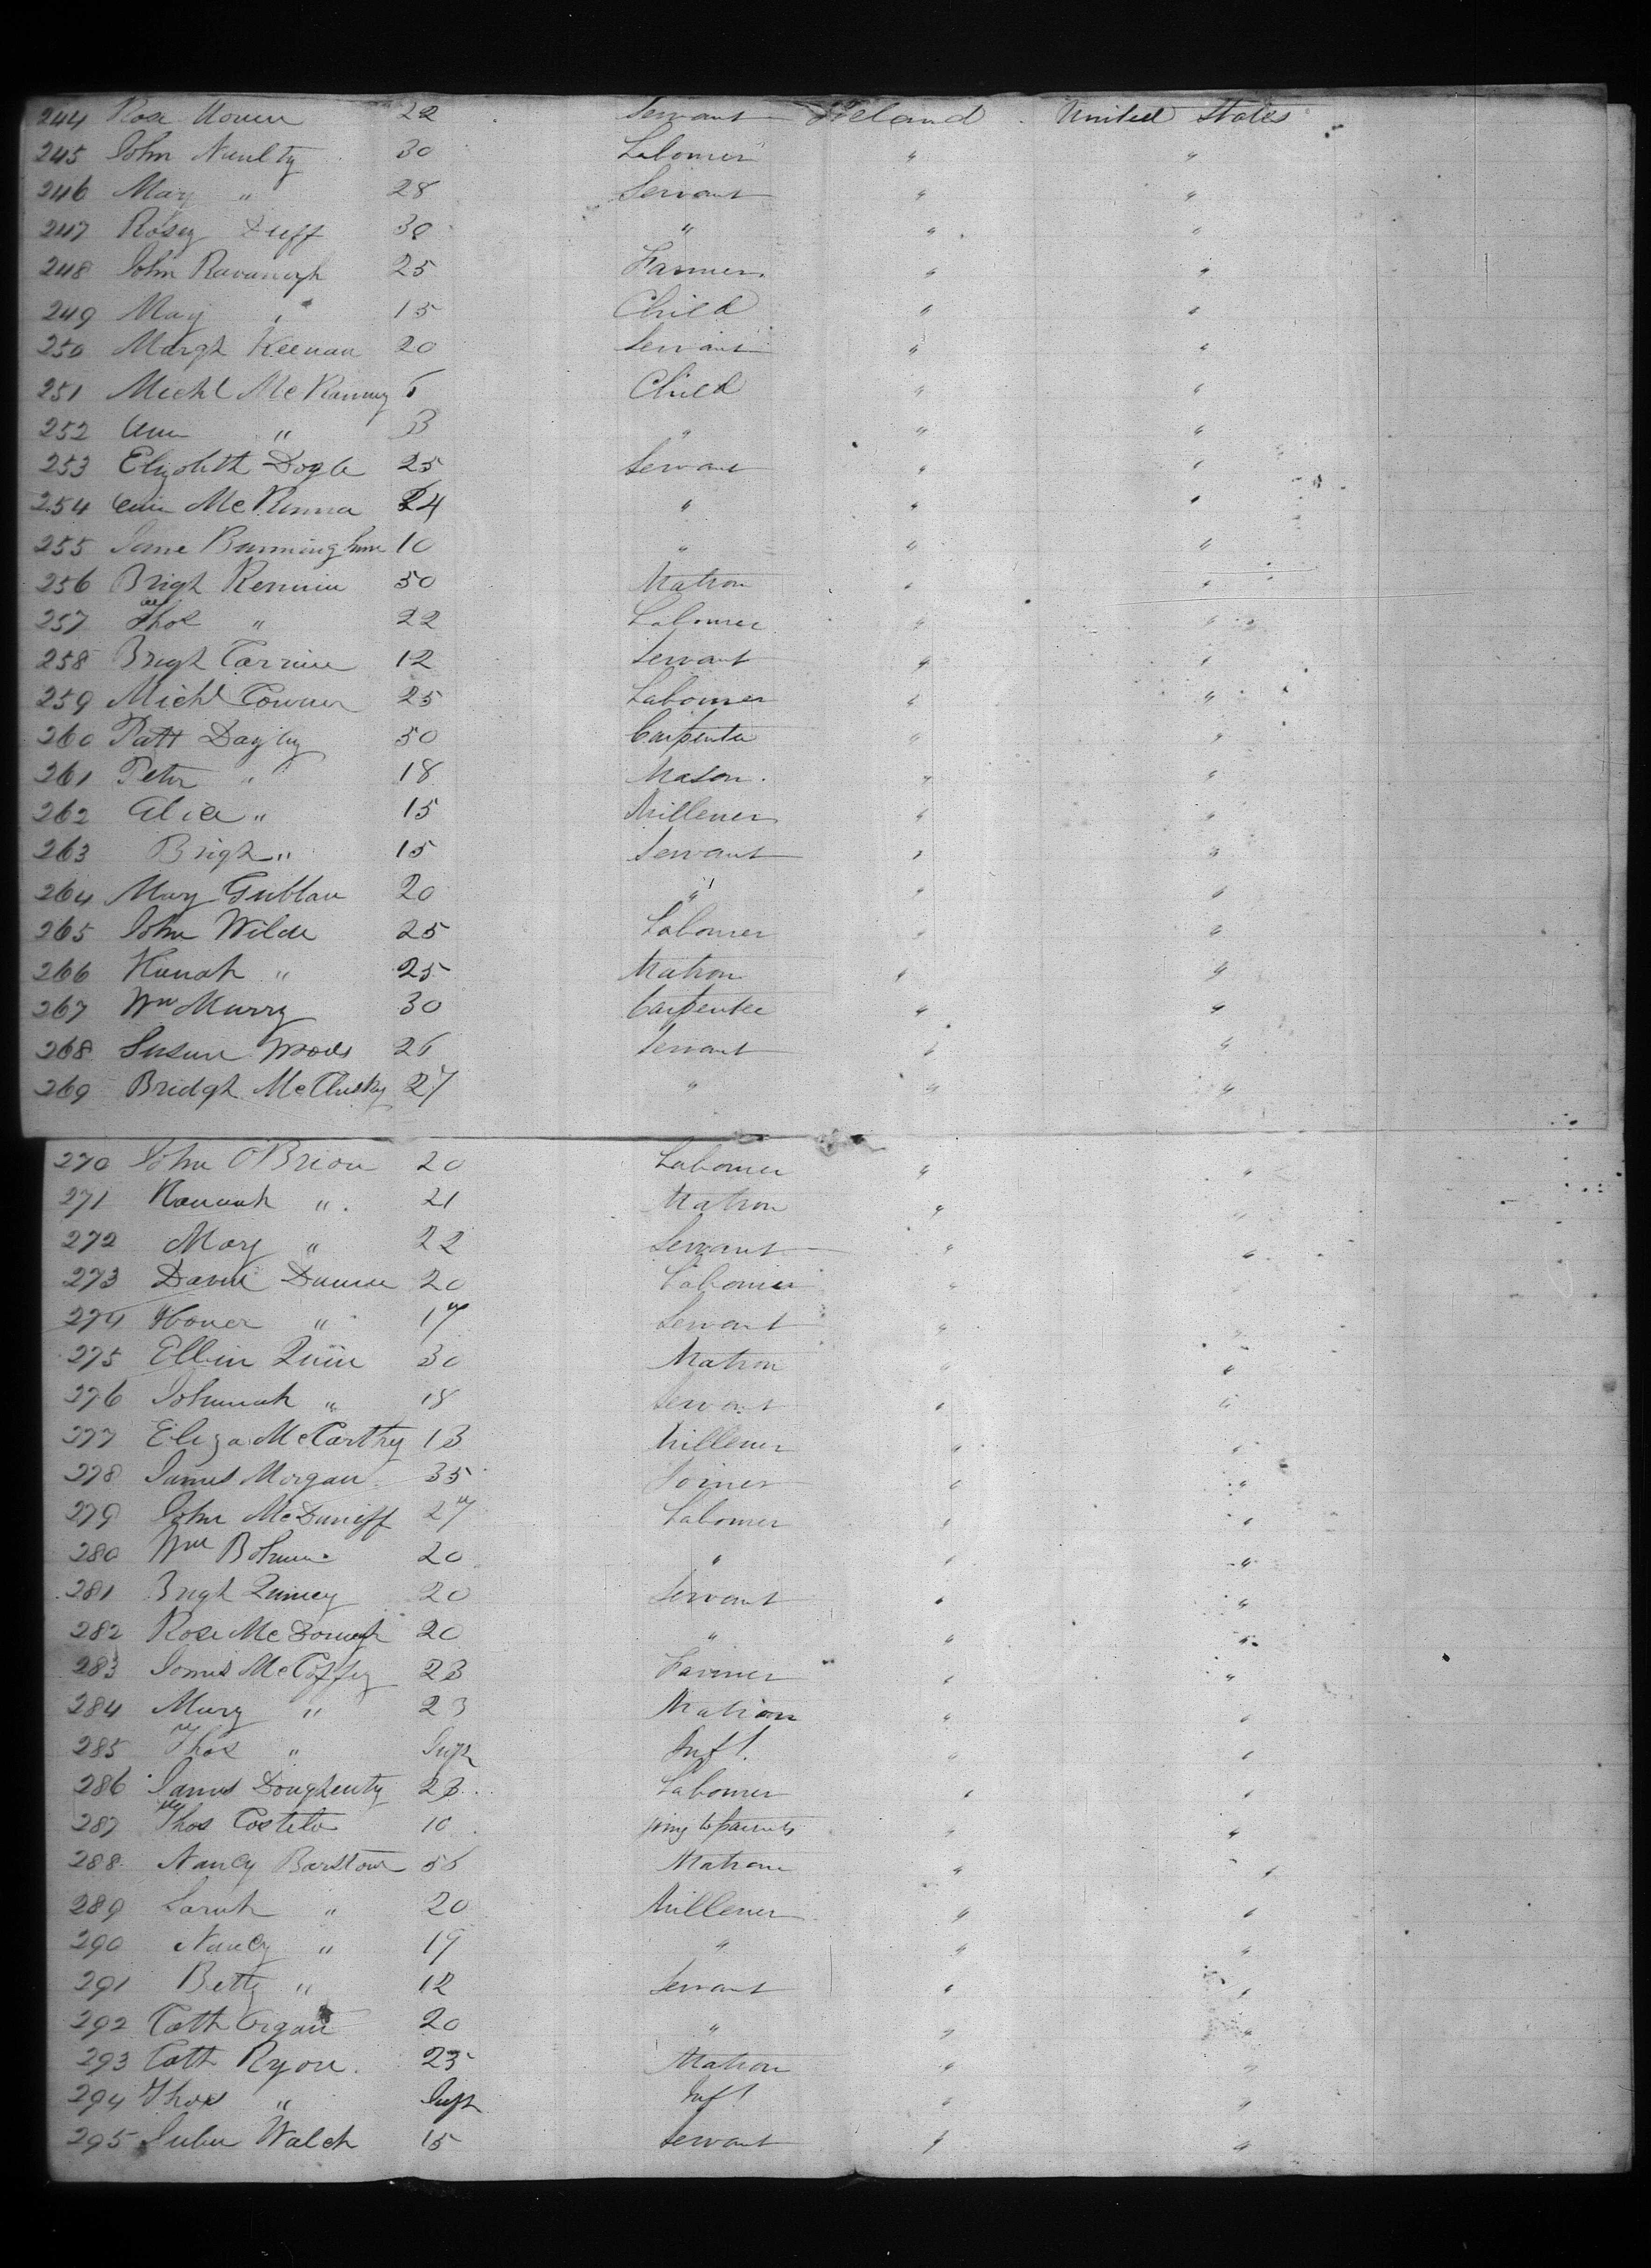 244 Rose 22 Servant Ireland United States
245 John Nunlty 30 Labourer " "
246 May " 28 Servant " "
247 Rosey Duff 30 " " "
248 John Kavanagh 25 Farmer " "
249 May " 15 Child " "
250 Margt Keenan 20 Servant " "
251 Michl 6 Child " "
252 Ann " 3 " " "
253 Elizabeth Doyle 25 Servant " "
254 McKenna 24 " " "
255 Jane Bunningham 10 " " "
256 Brigt 50 Matron " "
257 Thos " 22 Labourer " "
258 Brigt 12 Servant " "
259 Michl 25 Labourer " "
260 Patt 50 Carpenter " "
261 Peter " 18 Mason " "
262 Alice " 15 Millener " "
263 Brigt " 15 Servant " "
264 Mary 20 " " "
265 John Wilde 25 Labourer " "
266 Hanah " 25 Matron " "
267 Wm Murry 30 Carpenter " "
268 Susan Woods 26 Servant " "
269 Bridgt McClusky 27 " " "
270 John O'Brien 20 Labourer " "
271 Hannah " 21 Matron " "
272 Mary " 22 Servant " "
273 20 Labourer " "
274 Honer " 17 Servant " "
275 Ellen Quin 30 Matron " "
276 Johannah " 18 Servant " "
277 Eliza McCarthy 13 Millener " "
278 James Morgan 35 Joiner " "
279 John McDuniff 27 Labourer " "
280 Wm 20 " " "
281 Brigt 20 Servant " "
282 Rose 20 " " "
283 James McCoffey 23 Farmer " "
284 Mary " 23 Matron " "
285 Thos " Inft Inft " "
286 James Dougherty 23 Labourer " "
287 Thos Costelo 10 going to parents " "
288 Nancy Barstow 56 Matron " "
289 Sarah " 20 Millener " "
290 Nancy " 19 " " "
291 Betty " 12 Servant " "
292 Cath 20 " " "
293 Cath Ryon 25 Matron " "
294 Thos " Inft Inft " "
295 Walch 15 Servant " "